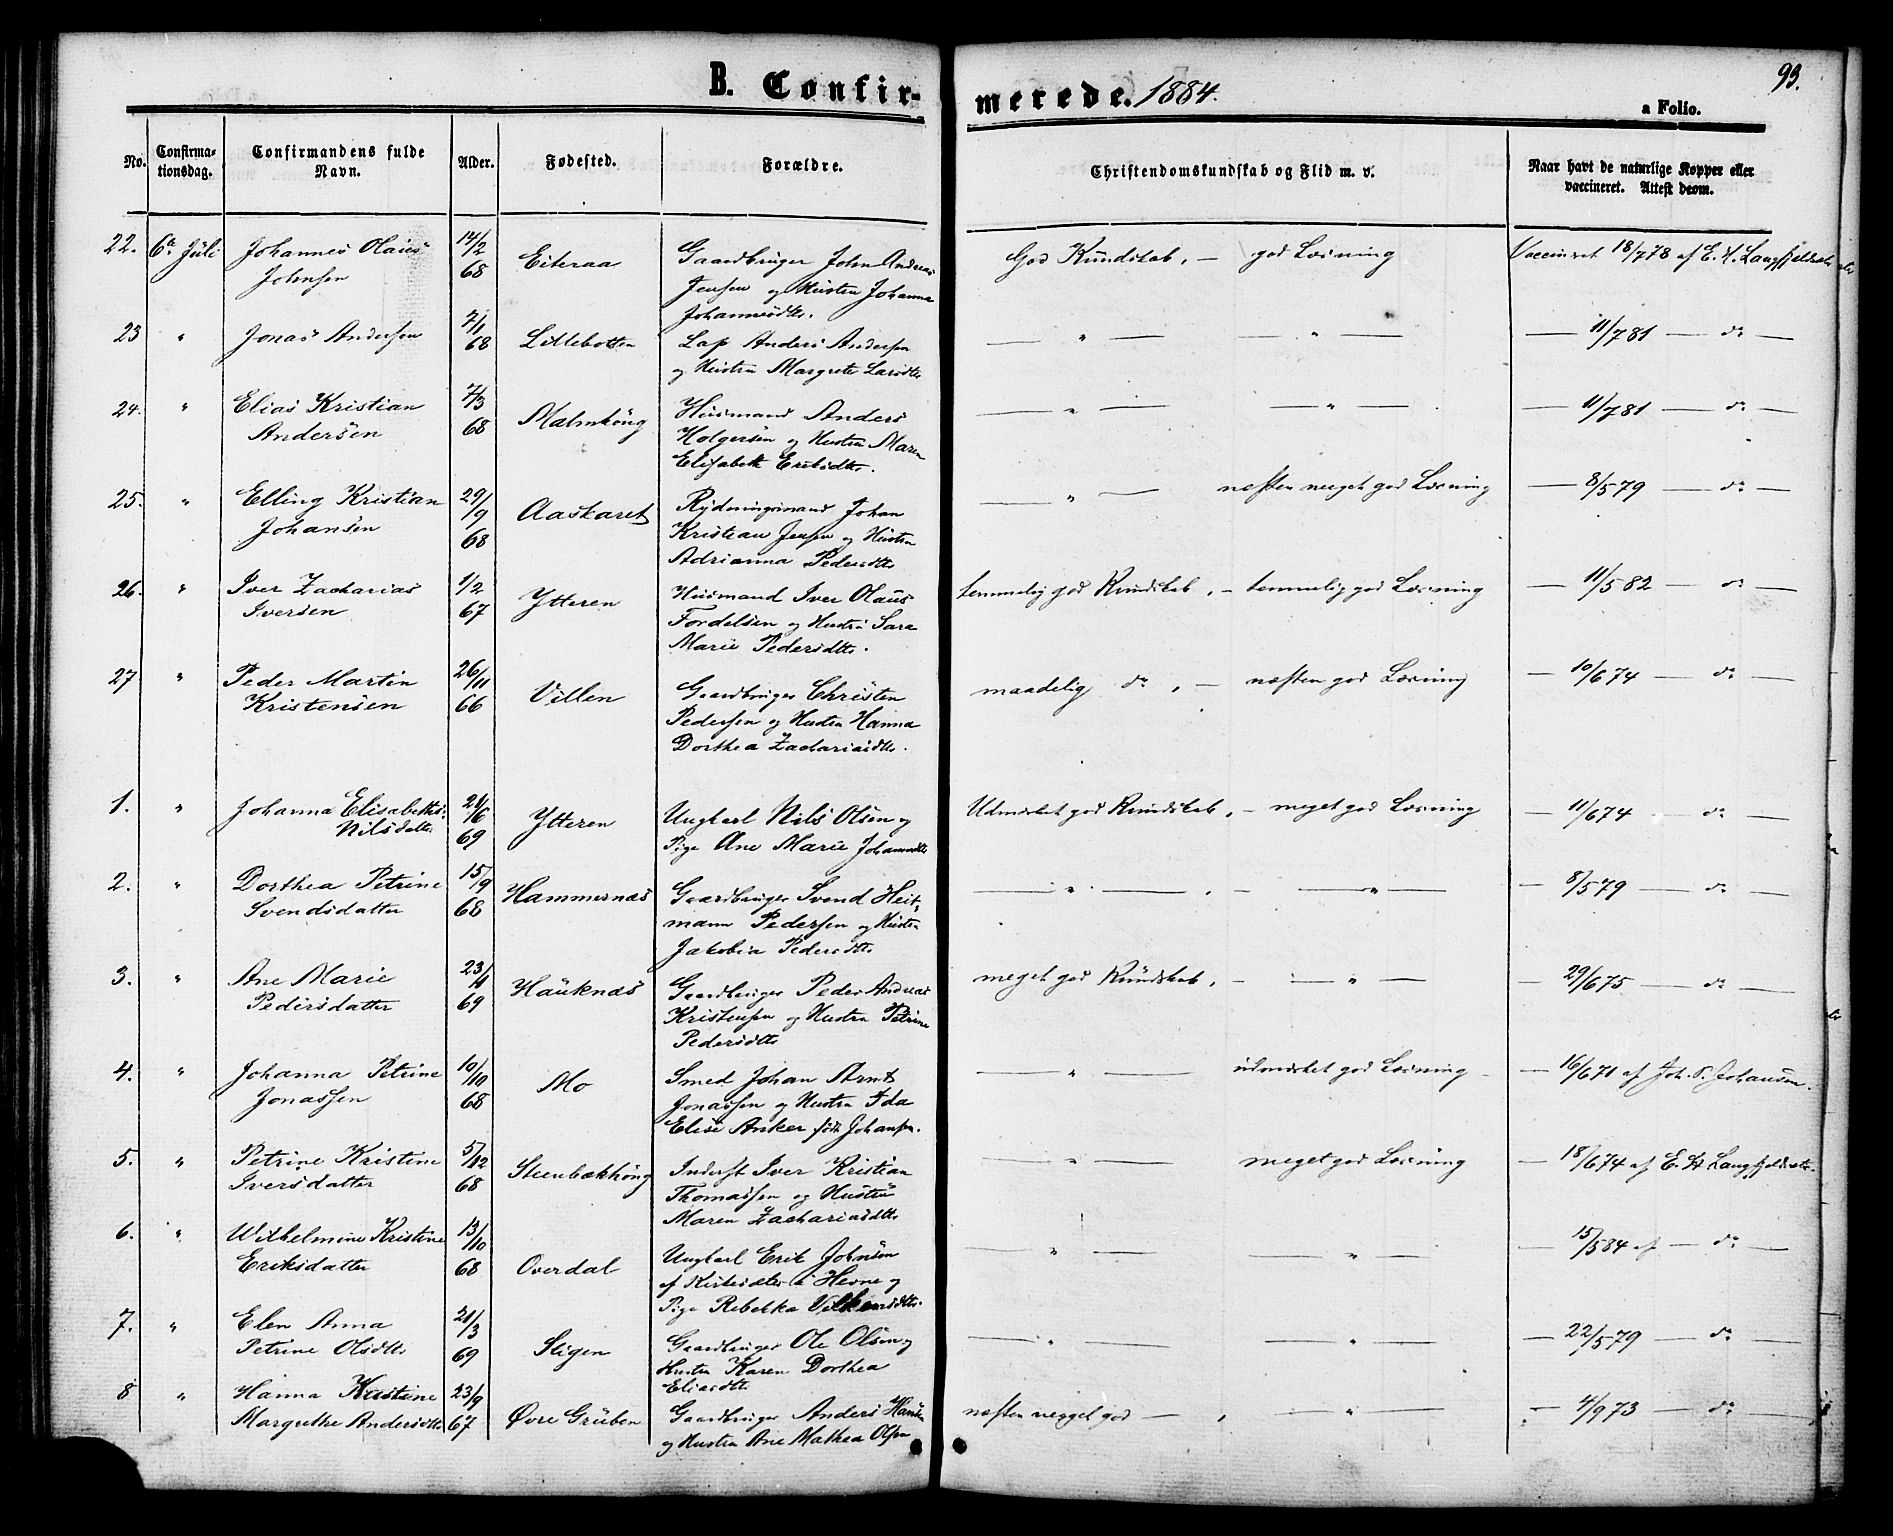 B. Confirmerede. 1884.
93.
a Folio.
No. | Confirmationsdag. | Confirmandens fulde Navn. | Alder. | Fødested. | Forældre. | Christendomskundskab og Flid m. v. | Naar havt de naturlige Kopper eller vaccineret. Attest deom.
22. | 6te Juli | Johannes Olaus Johnsen | 14/2 68 | Eiteraa | Gaardbruger John Andreas Jensen og Hustru Johanna Johannesdtr. | God Kundskab, — god Læsning | Vaccineret 18/778 af E. H. Langfjeldæter
23 | " | Jonas Andersen | 7/1 68 | Lillebotten | Lap Anders Andersen og Hustru Margrete Larsdtr | — " — — " — | — 11/781 — do —
24. | " | Elias Kristian Andersen | 7/3 68 | Malmhöug | Husmand Anders Holgersen og Hustru Maren Elisabeth Eriksdtr. | — " — — " — | — 11/781 — do —
25. | " | Elling Kristian Johansen | 29/9 68 | Aaskaret | Rydningsmand Johan Kristian Jensen og Hustru Adrianna Pedersdtr | — " — næsten meget god Læsning | — 8/579 — do —
26. | " | Iver Zacharias Iversen | 1/2 67 | Ytteren | Husmand Iver Olaus Fordelsen og Hustru Sara Marie Pedersdtr. | temmelig god Kundskab, — temmelig god Læsning | — 11/582 — do
27 | " | Peder Martin Kristensen | 26/11 66 | Villen | Gaardbruger Christen Pedersen og Hustru Hanna Dorthea Zachariasdtr. | maadelig do, — næsten god Læsning | — 10/674 — do —
1. | " | Johanna Elisabeths Nilsdatter | 21/6 69 | Ytteren | Ungkarl Nils Olsen og Pige Ane Marie Johannesdtr | Udmærket god Kundskab, — meget god Læsning | — 11/674 — do —
2. | " | Dorthea Petrine Svendsdatter | 15/9 68 | Hammernæs | Gaardbruger Svend Heitmann Pedersen og Hustru Jakobia Pedersdtr | — " — , — — " — | — 8/579 — do —
3. | " | Ane Marie Pedersdatter | 23/4 69 | Hauknæs | Gaardbruger Peder Andreas Kristensen og Hustru Petrine Pedersdtr | meget god Kundskab, — — " — | — 29/675 — do —
4. | " | Johanna Petrine Jonassen | 10/10 68 | Mo | Smed Johan Arnt Jonassen og Hustru Ida Elise Anker født Johansen. | — " — udmærket god Læsning — | — 16/671 af Joh. P. Johansen.
5. | " | Petrine Kristine Iversdatter | 5/12 68 | Steenbækhöug | Inderst Iver Kristian Thomassen og Hustru Maren Zachariasdtr | — " — meget god Læsning | — 18/674 af E. H Langfjeldæter
6. | " | Wilhelmine Kristine Eriksdatter | 13/10 68 | Overdal | Ungkarl Erik Johnsen af i Hevne og Pige Rebekka Velkensdtr. | — " — — " — | — 15/584 af — do —
7. | " | Elen Anna Petrine Olsdtr | 21/3 69 | Stigen | Gaardbruger Ole Olsen og Hustru Karen Dorthea Eliasdtr | — " — — " — | — 22/579 — do —
8 | " | Hanna Kristine Margrethe Andersdtr | 23/9 67 | Øvre Gruben | Gaardbruger Anders Hansen og Hustru Ane Mathea Olsen | næsten megget god — , — " — | — 4/973 — do —